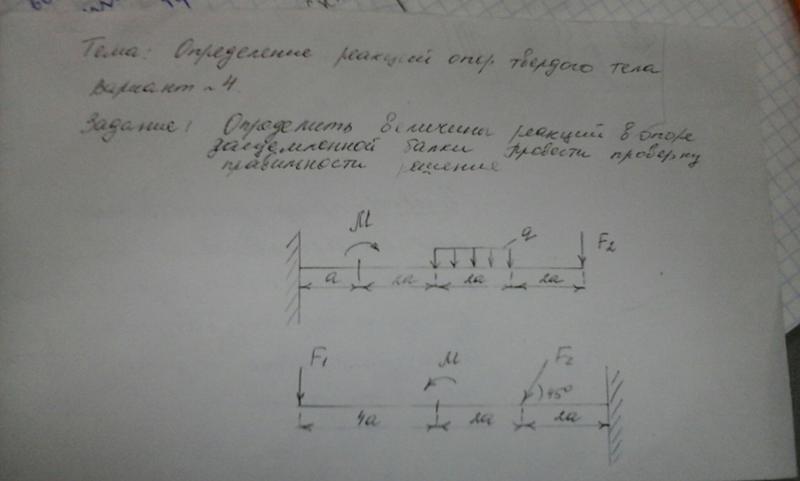 Тема: Определение реакций опор твердого тела
Вариант ~ 4.
Задание: Определить величины реакций в опоре
защемленной балки провести проверку
правильности решение
M
q
F2
a 2a 2a 2a
F1 M F2
45°
4a 2a 2a